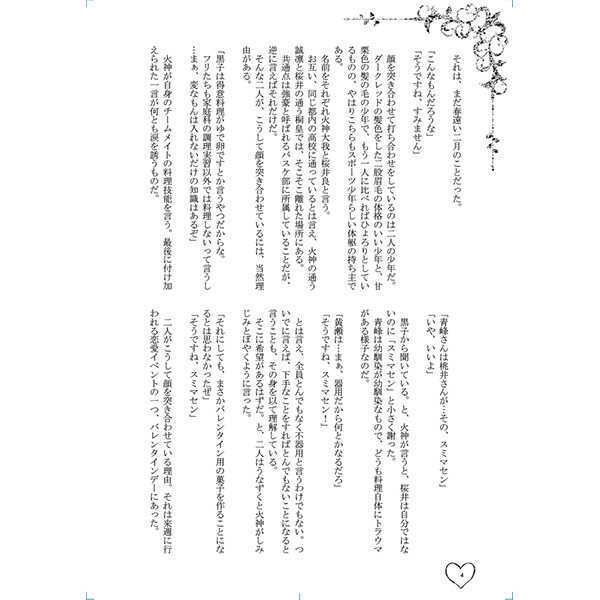 それは、まだ春遠い二月のことだった。
「こんなもんだろうな」
「そうですね、すみません」
顔を突き合わせて打ち合わせをしているのは二人の少年だ。
ダークレッドの髪色をした二股眉毛の体格のいい少年と、甘
栗色の髪の毛の少年で、もう一人に比べればひょろりとしてい
るものの、やはりこちらもスポーツ少年らしい体躯の持ち主で
ある。
名前をそれぞれ火神大我と桜井良と言う。
お互い、同じ都内の高校に通っているとは言え、火神の通う
誠凛と桜井の通う桐皇では、そこそこ離れた場所にある。
共通点は強豪と呼ばれるバスケ部に所属していることだが、
逆に言えばそれだけだ。
そんな二人が、こうして顔を突き合わせているには、当然理
由がある。
「黒子は得意料理がゆで卵ですとか言うやつだからな。
フリたちも家庭科の調理実習以外では料理しないって言うし
…まぁ、変なもんは入れないだけの知識はあるぞ」
火神が自身のチームメイトの料理技能を言う。最後に付け加
えられた一言が何とも涙を誘うものだ。
「青峰さんは桃井さんが…その、スミマセン」
「いや、いいよ」
黒子から聞いている。と、火神が言うと、桜井は自分ではな
いのに「スミマセン」と小さく謝った。
青峰は幼馴染が幼馴染なもので、どうも料理自体にトラウマ
がある様子なのだ。
「黄瀬は…まぁ、器用だから何とかなるだろ」
「そうですね、スミマセン！」
とは言え、全員とんでもなく不器用と言うわけでもない。つ
いでに言えば、下手なことをすればとんでもないことになると
言うことも、その身を以て理解している。
そこに希望があるはずだ。と、二人はうなずくと火神がしみ
じみとぼやくように言った。
「それにしても、まさかバレンタイン用の菓子を作ることにな
るとは思わなかったぜ」
「そうですね、スミマセン」
二人がこうして顔を突き合わせている理由。それは来週に行
われる恋愛イベントの一つ、バレンタインデーにあった。
4